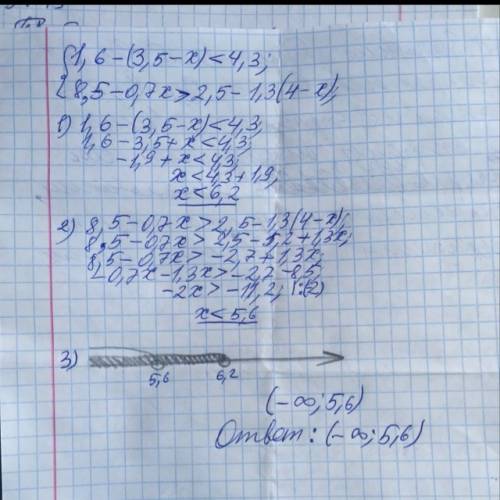 {1,6-(3,5-x)<4,3;
8,5-0,7x>2,5-1,3(4-x);
1) 1,6-(3,5-x)<4,3;
1,6-3,5+x<4,3;
-1,9+x<4,3;
x<4,3+1,9;
x<6,2
2) 8,5-0,7x>2,5-1,3(4-x);
8,5-0,7x>2,5-5,2+1,3x;
8,5-0,7x>-2,7+1,3x;
-0,7x-1,3x>-2,7-8,5;
-2x>-11,2; |:(2)
x<5,6
3)
5,6 6,2
(-∞;5,6)
Ответ: (-∞;5,6)